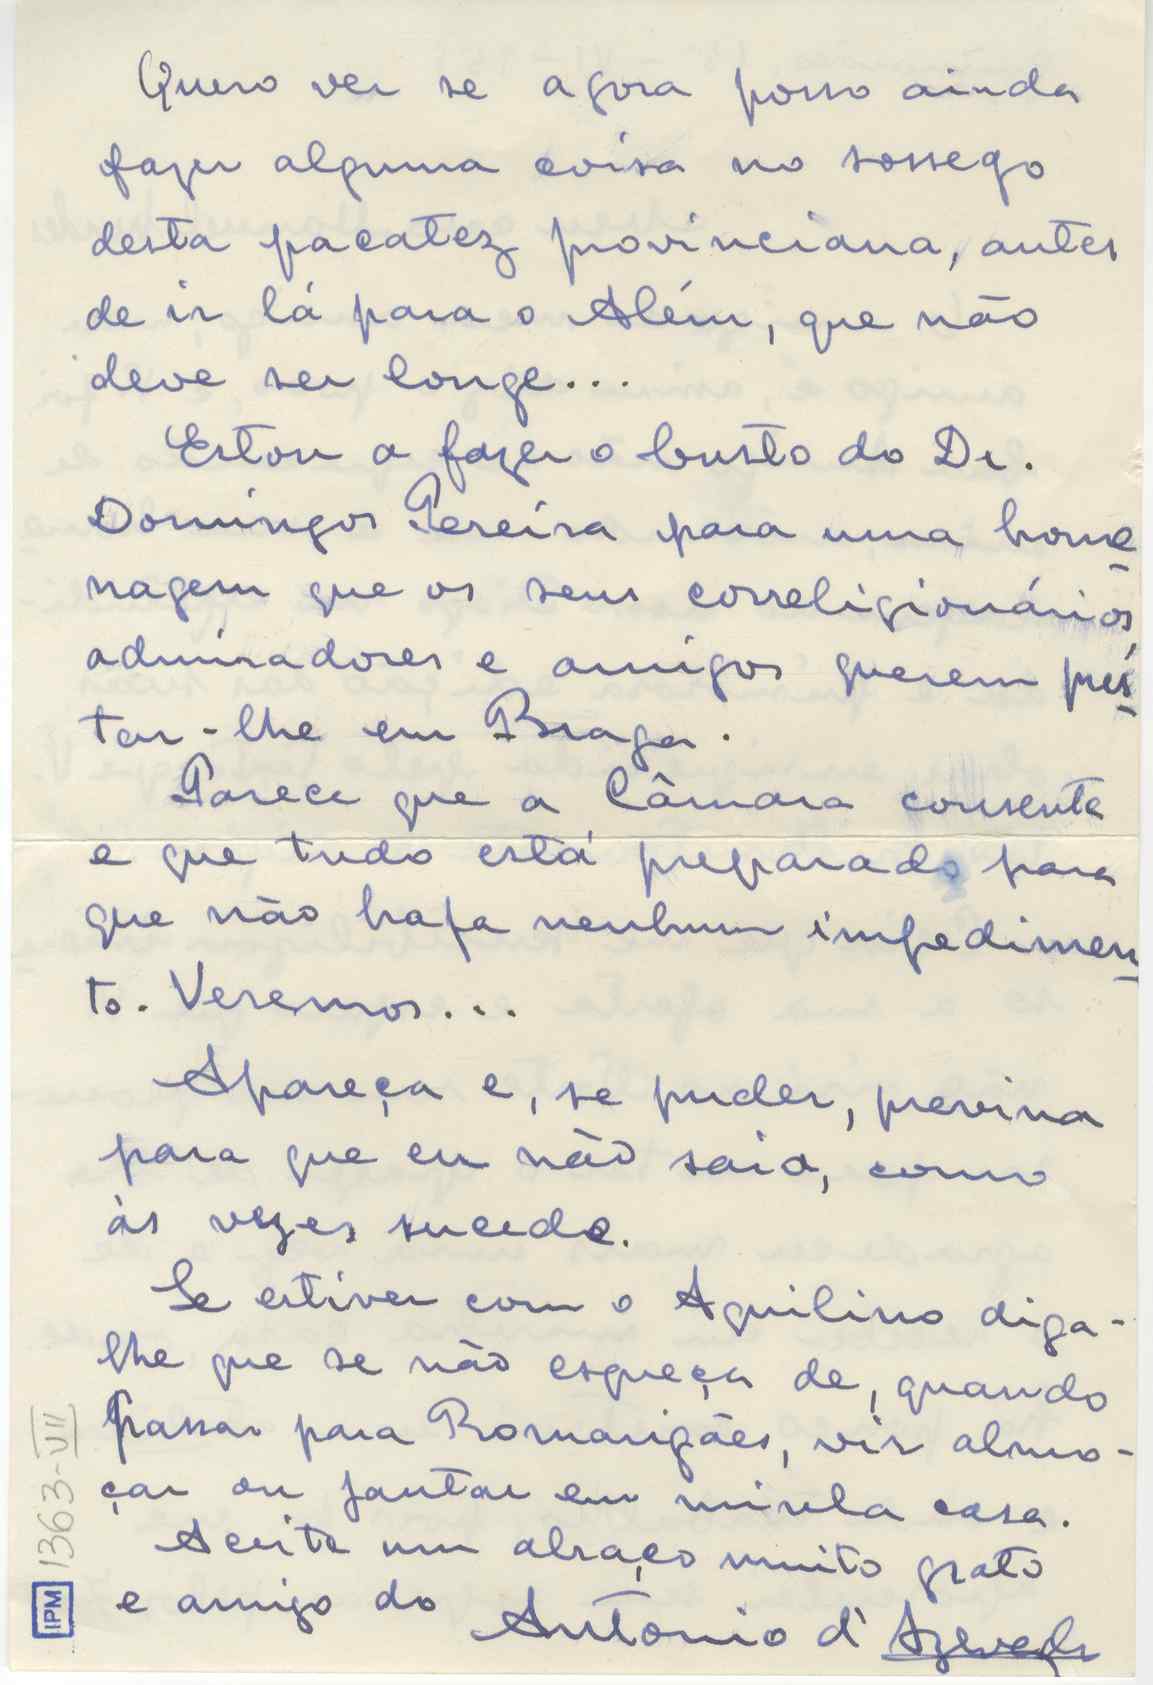 Quero ver se agora posso ainda
fazer alguma coisa no sossego
desta pacatez provinciana, antes
de ir lá para o Além, que não
deve ser longe...
Estou a fazer o busto do Dr.
Domingos Pereira para uma home
nagem que os seus correligionários,
admiradores e amigos querem pres
tar-lhe em Braga.
Parece que a Câmara consente
e que tudo está preparado para
que não haja nenhum impedimen
to. Veremos...
Apareça e, se puder, previna
para que eu não saia, como
às vezes sucede.
Se estiver com o Aquilino diga-
lhe que se não esqueça de, quando
passar para Romarigães, vir almo-
çar ou jantar em minha casa.
Aceite um abraço muito grato
e amigo do António d'Azevedo
1363-VII
IPM